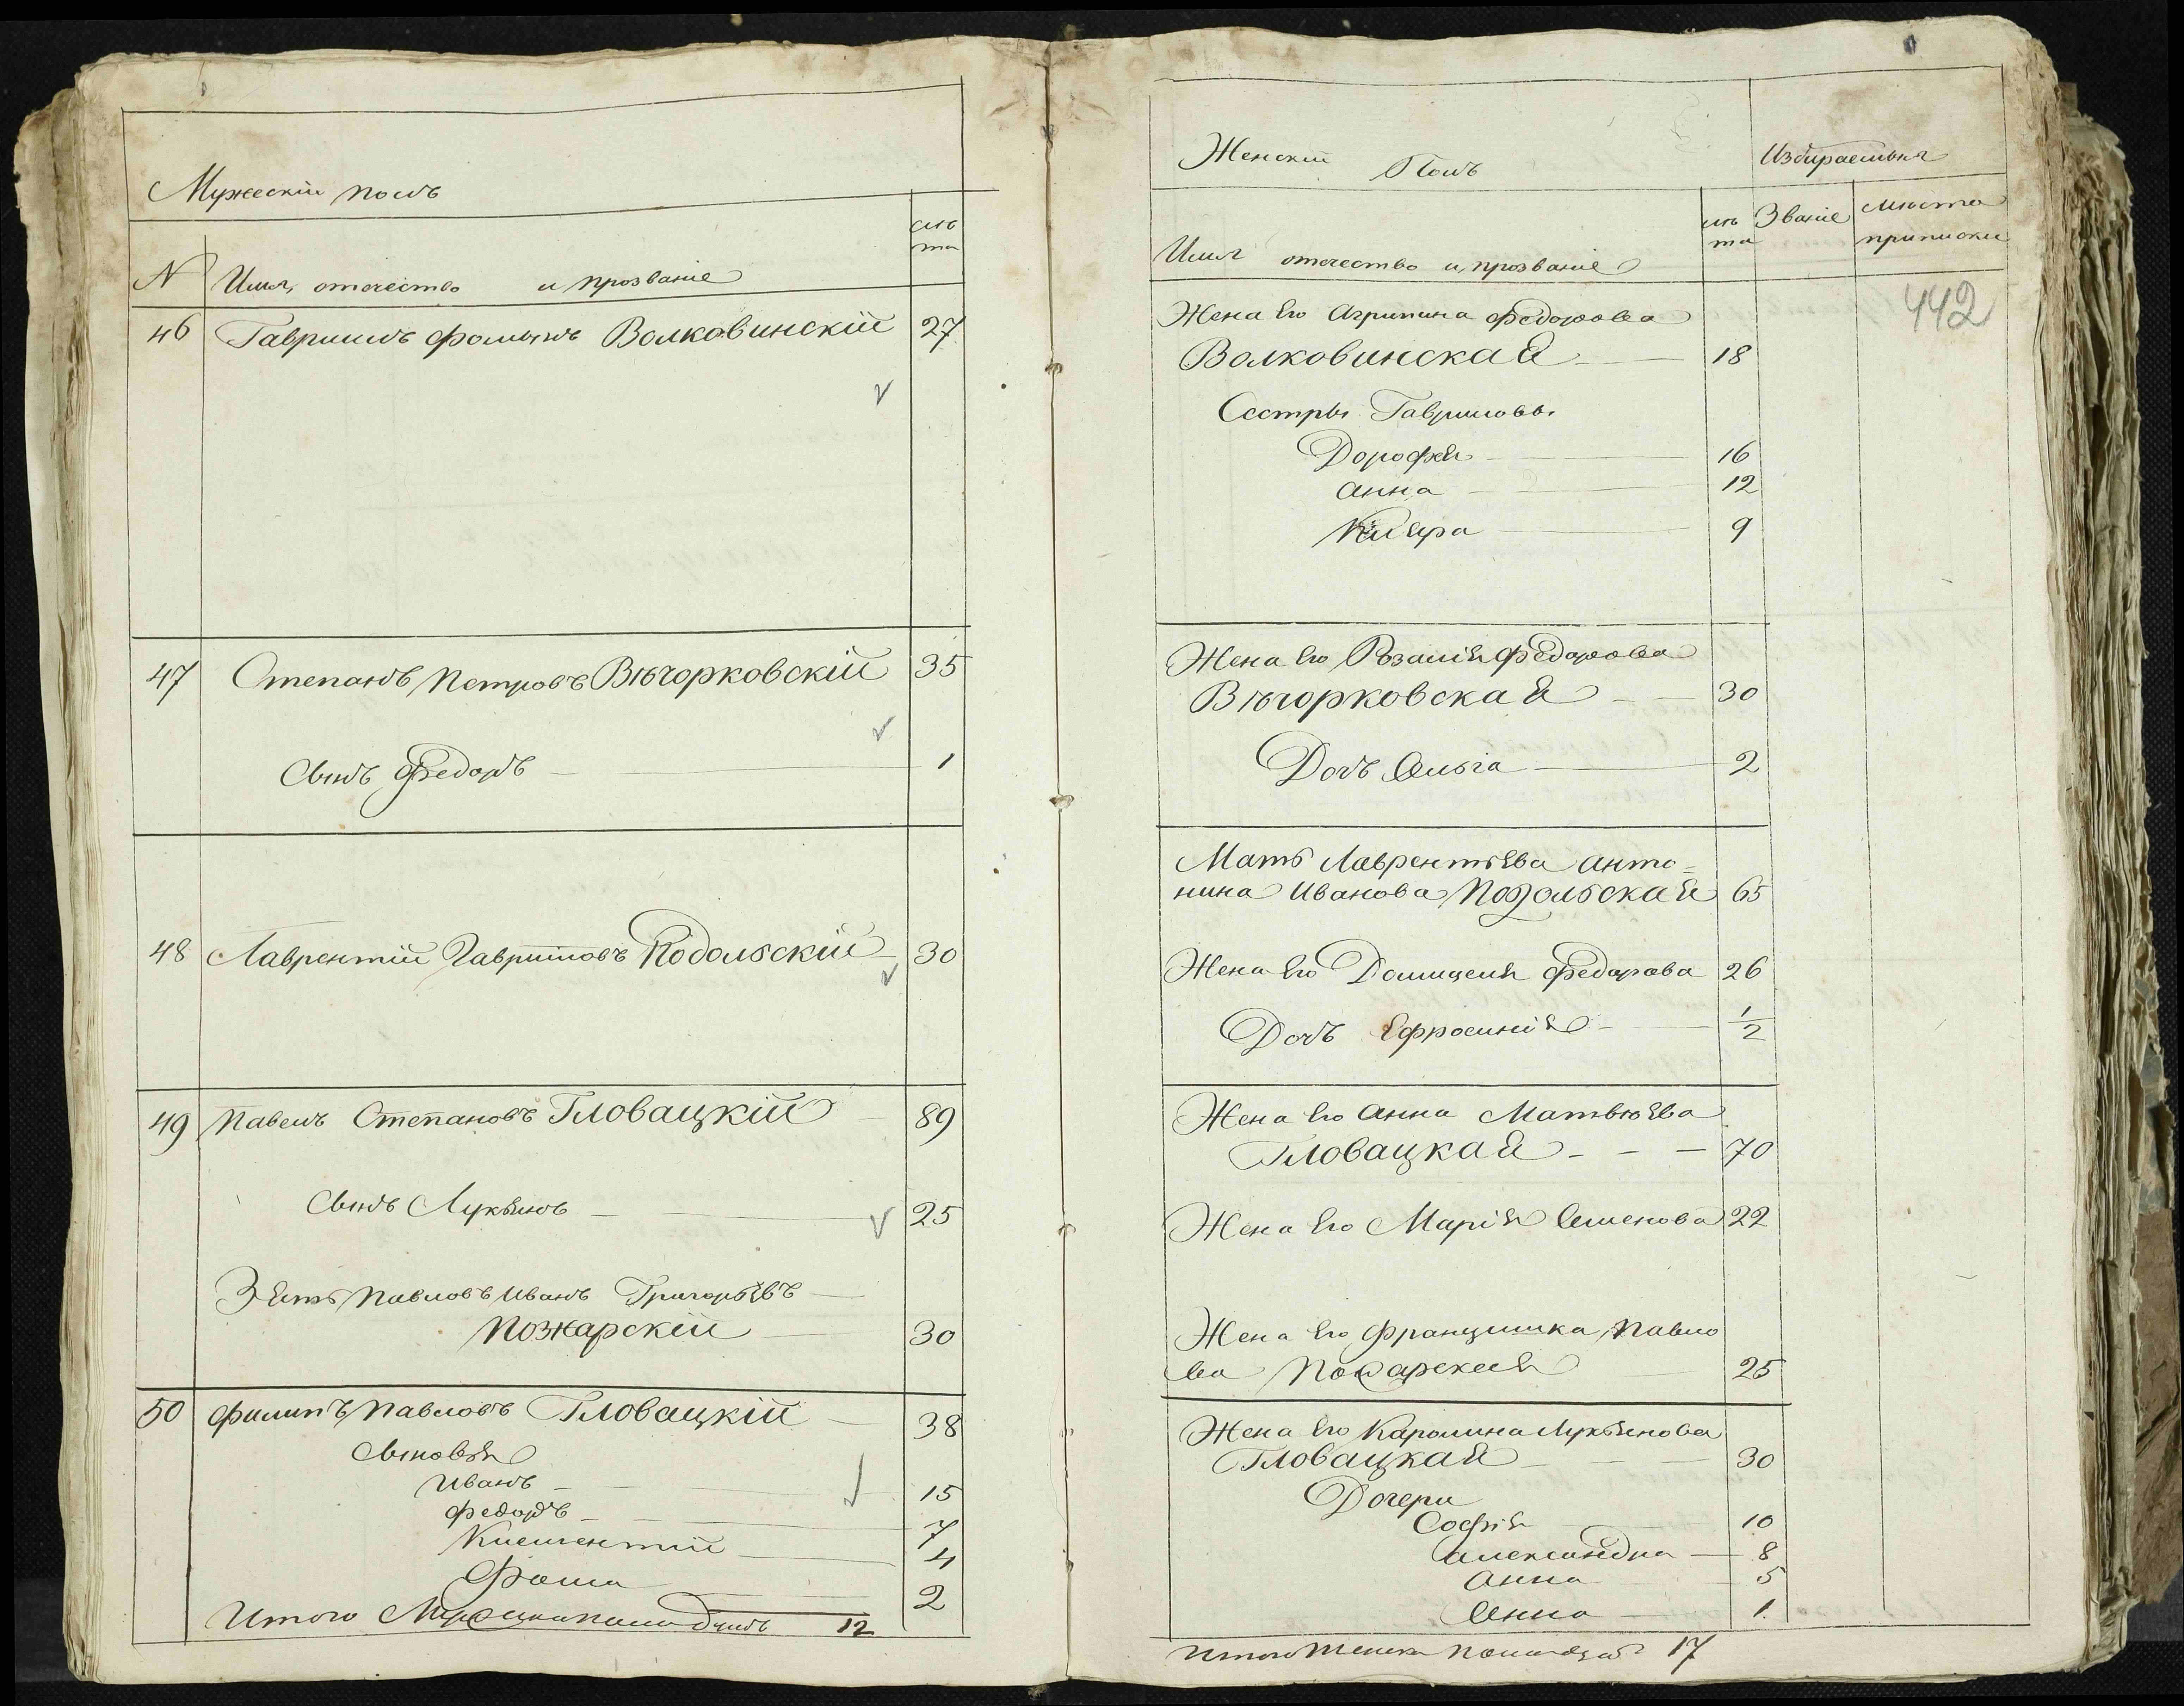 Мужескiй полъ
лѣ
та
N Имя, отечество и прозванiе
46 Гаврiилъ Фоминъ Волковинскiй 27
47 Степанъ Петровъ Вѣчорковскiй 35
Сынъ Федоръ 1
48 Лаврентiй Гавриловъ Подольскiй 30
49 Павелъ Степановъ Гловацкiй 89
Сынъ Лукьянъ 25
Зять Павловъ Иванъ Григорьевъ
Пожарскiй 30
50 Филипъ Павловъ Гловацкiй 38
Сыновья
Иванъ 15
Федоръ 7
Климентiй 4
Фома 2
Итого Мужеска пола душъ 12
Женскiй Полъ Избираемыя
Имя отечество и прозванiе лѣ
та Званiе Мѣста
приписки
442
Жена Его Агрипина Федорова
Волковинская 18
Сестры Гавриловы
Дорофея 16
Анна 12
9
Жена Его Розалiя Федорова
Вѣчорковская 30
Дочь Ольга 2
Мать Лаврентьева Анто=
нина Иванова Подольская 65
Жена Его Домицеля Федорова 26
Дочь Ефросинiя 1/2
Жена Его Анна Матвѣева
Гловацкая 70
Жена Его Марiя Семенова 22
Жена Его Францишка Павло
ва Пожарская 25
Жена Его Каролина Лукьянова
Гловацкая 30
Дочери
Софiя 10
Александра 8
Анна 5
Анна 1.
Итого Женска пола душъ 17